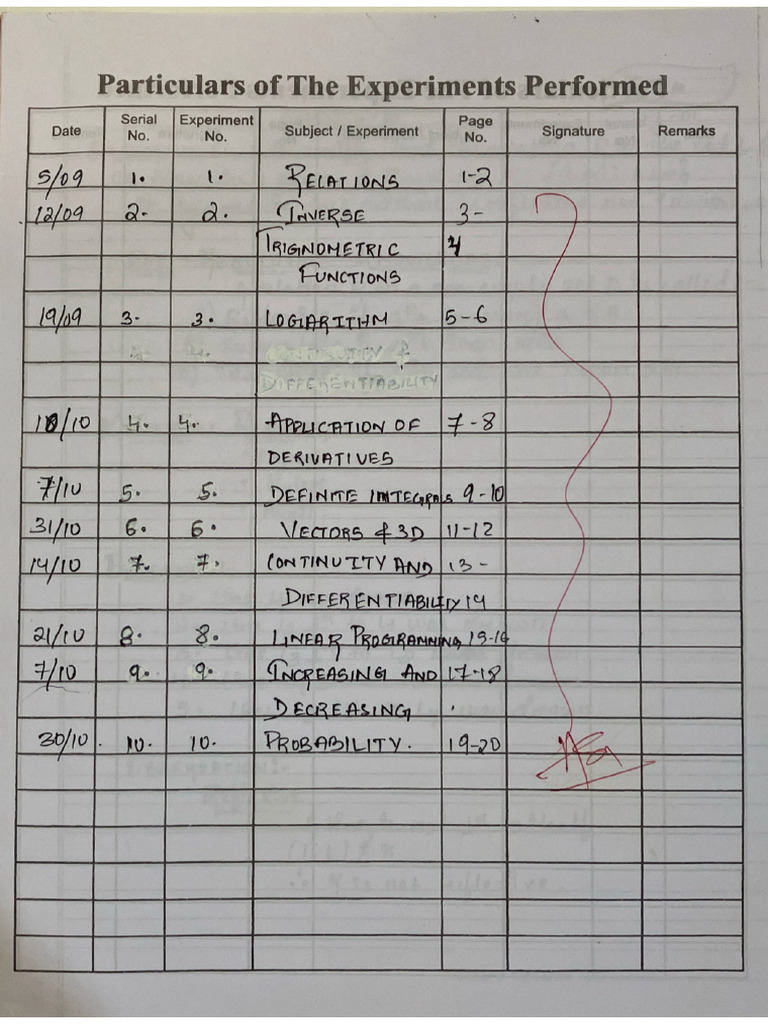 Particulars of The Experiments Performed
Date Serial No. Experiment No. Subject / Experiment Page No. Signature Remarks
5/09 1. 1. RELATIONS 1-2
12/09 2. 2. INVERSE 3-
TRIGNOMETRIC 4
FUNCTIONS
19/09 3. 3. LOGARITHM 5-6
4. CONTINUITY &
DIFFERENTIABILITY
10/10 4. 4. APPLICATION OF 7-8
DERIVATIVES
7/10 5. 5. DEFINITE INTEGRALS 9-10
31/10 6. 6. VECTORS & 3D 11-12
14/10 7. 7. CONTINUITY AND 13-
DIFFERENTIABILIY 14
21/10 8. 8. LINEAR PROGRAMMING 15-16
7/10 9. 9. INCREASING AND 17-18
DECREASING
30/10. 10. 10. PROBABILITY. 19-20